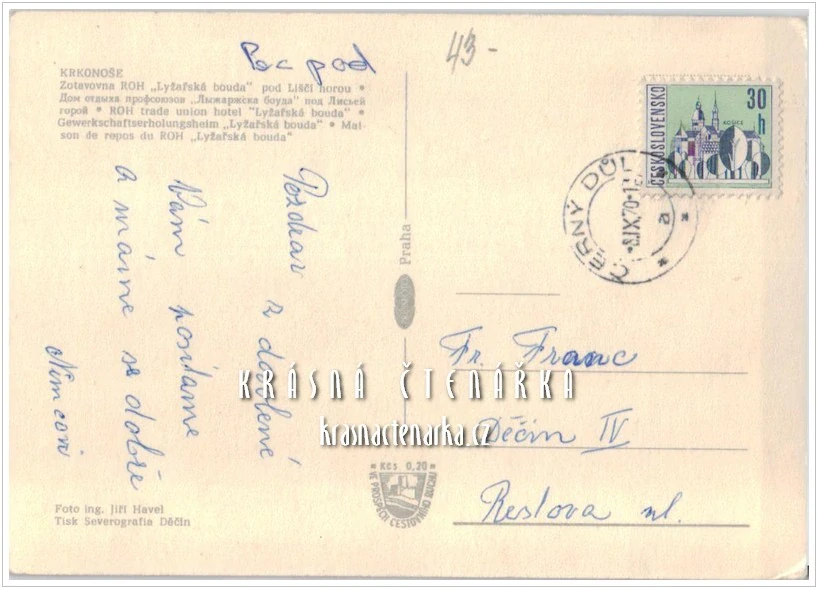 43-
KRKONOŠE
Zotavovna ROH „Lyžařská bouda" pod Liščí horou •
Дом отдыха профсоюзов „Лыжаржска боуда" под Лисьей
горой • ROH trade union hotel "Lyžařská bouda" •
Gewerkschaftserholungsheim „Lyžařská bouda" • Mai-
son de repos du ROH „Lyžařská bouda"
Pozdrav z dovolené
Vám posílame
a máme se dobře
Němcovi
Praha
ČESKOSLOVENSKO
30 h
KOŠICE
ČERNÝ DŮL
8.IX.70
a
Fr. Franc
Děčín IV
Reslova ul.
KRÁSNÁ ČTENÁŘKA
krasnactenarka.cz
Kčs 0,20
VE PROSPĚCH CESTOVNÍHO RUCHU
Foto ing. Jiří Havel
Tisk Severografia Děčín